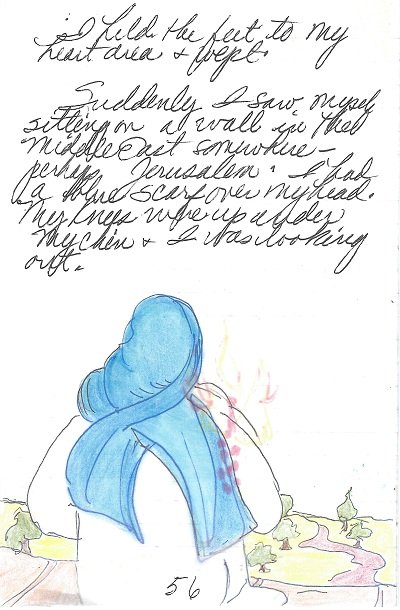 I held the feet to my
heart area & wept.
Suddenly I saw myself
sitting on a wall in the
Middle East somewhere -
perhaps Jerusalem. I had
a blue scarf over my head.
My knees were up under
my chin & I was looking
out.
56